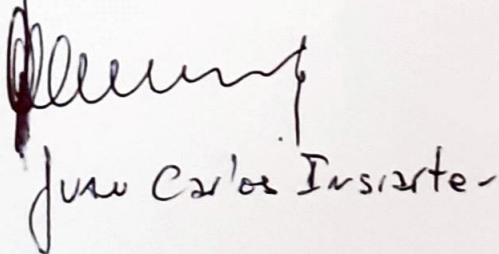 Juan Carlos Insiarte